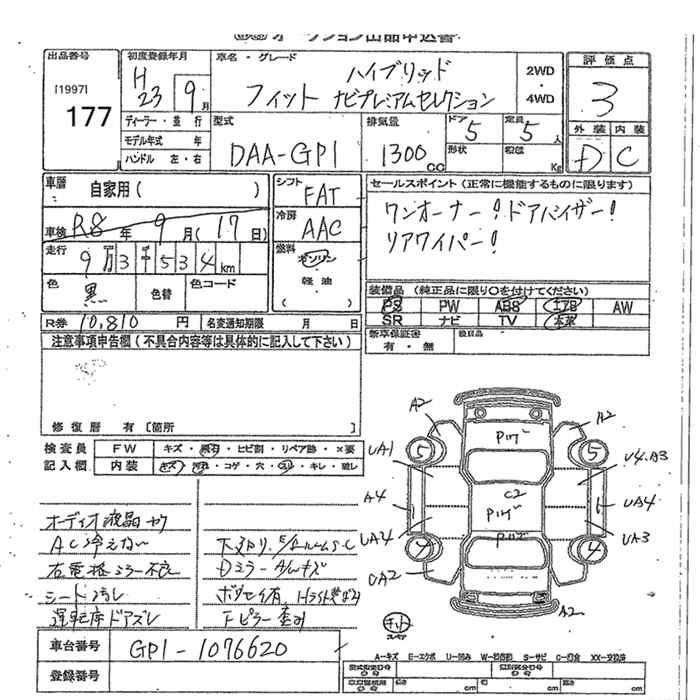 オークション出品申込書
出品番号
[1997]
177
初度登録年月
H
23 9月
車名・グレード
ハイブリッド
フィット ナビプレミアムセレクション
2WD
・
4WD
評価点
3
外装 内装
D C
ディーラー・並行
モデル年式 年
ハンドル 左・右
型式
DAA-GP1
排気量
1300cc
ドア
5
定員
5人
形状
積載
Kg
車歴
自家用( )
車検 R8年 9月(17日)
走行
9万3千534km
色
黒
色替
色コード
シフト
FAT
冷房
AAC
燃料
ガソリン
・
軽油
( )
セールスポイント(正常に機能するものに限ります)
ワンオーナー!ドアバイザー!
リアワイパー!
装備品(純正品に限り○を付けてください)
PS PW ABS エアB AW
SR ナビ TV 本革
新車保証書
有・無
後日品
R券 10,810円
名変通知期限 月 日
注意事項申告欄(不具合内容等は具体的に記入して下さい)
修復歴 有[箇所 ]
検査員
記入欄
FW キズ・飛石・ヒビ割・リペア跡・×要
内装 キズ・汚れ・コゲ・穴・スレ・キレ・破レ
オーディオ液晶ヤケ
AC冷えない
右電格ミラー不良
シート汚れ
運転席ドアズレ
下廻り、E/ルームS・C
Dミラー A/Wキズ
A2
A2
Pハゲ
5
5
UA1
U4.A3
A4
C2
UA4
Pハゲ
UA4
UA3
Pハゲ
4
4
UA2
A2
車台番号
GP1-1076620
登録番号
A=キズ E=エクボ U=凹み W=砂傷凹 S=サビ C=腐食 XX=交換済
型式指定番号
類別区分番号
長さ cm
幅 cm
高さ cm